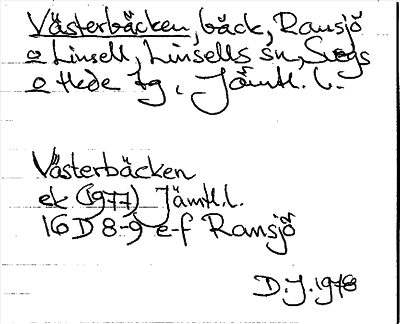 Västerbäcken, bäck, Ransjö
o Linsell, Linsells sn, Svegs
o Hede tg, Jämtl. l.
Västerbäcken
ek (1977) Jämtl. l.
16 D 8-9 e-f Ransjö
D.J. 1978